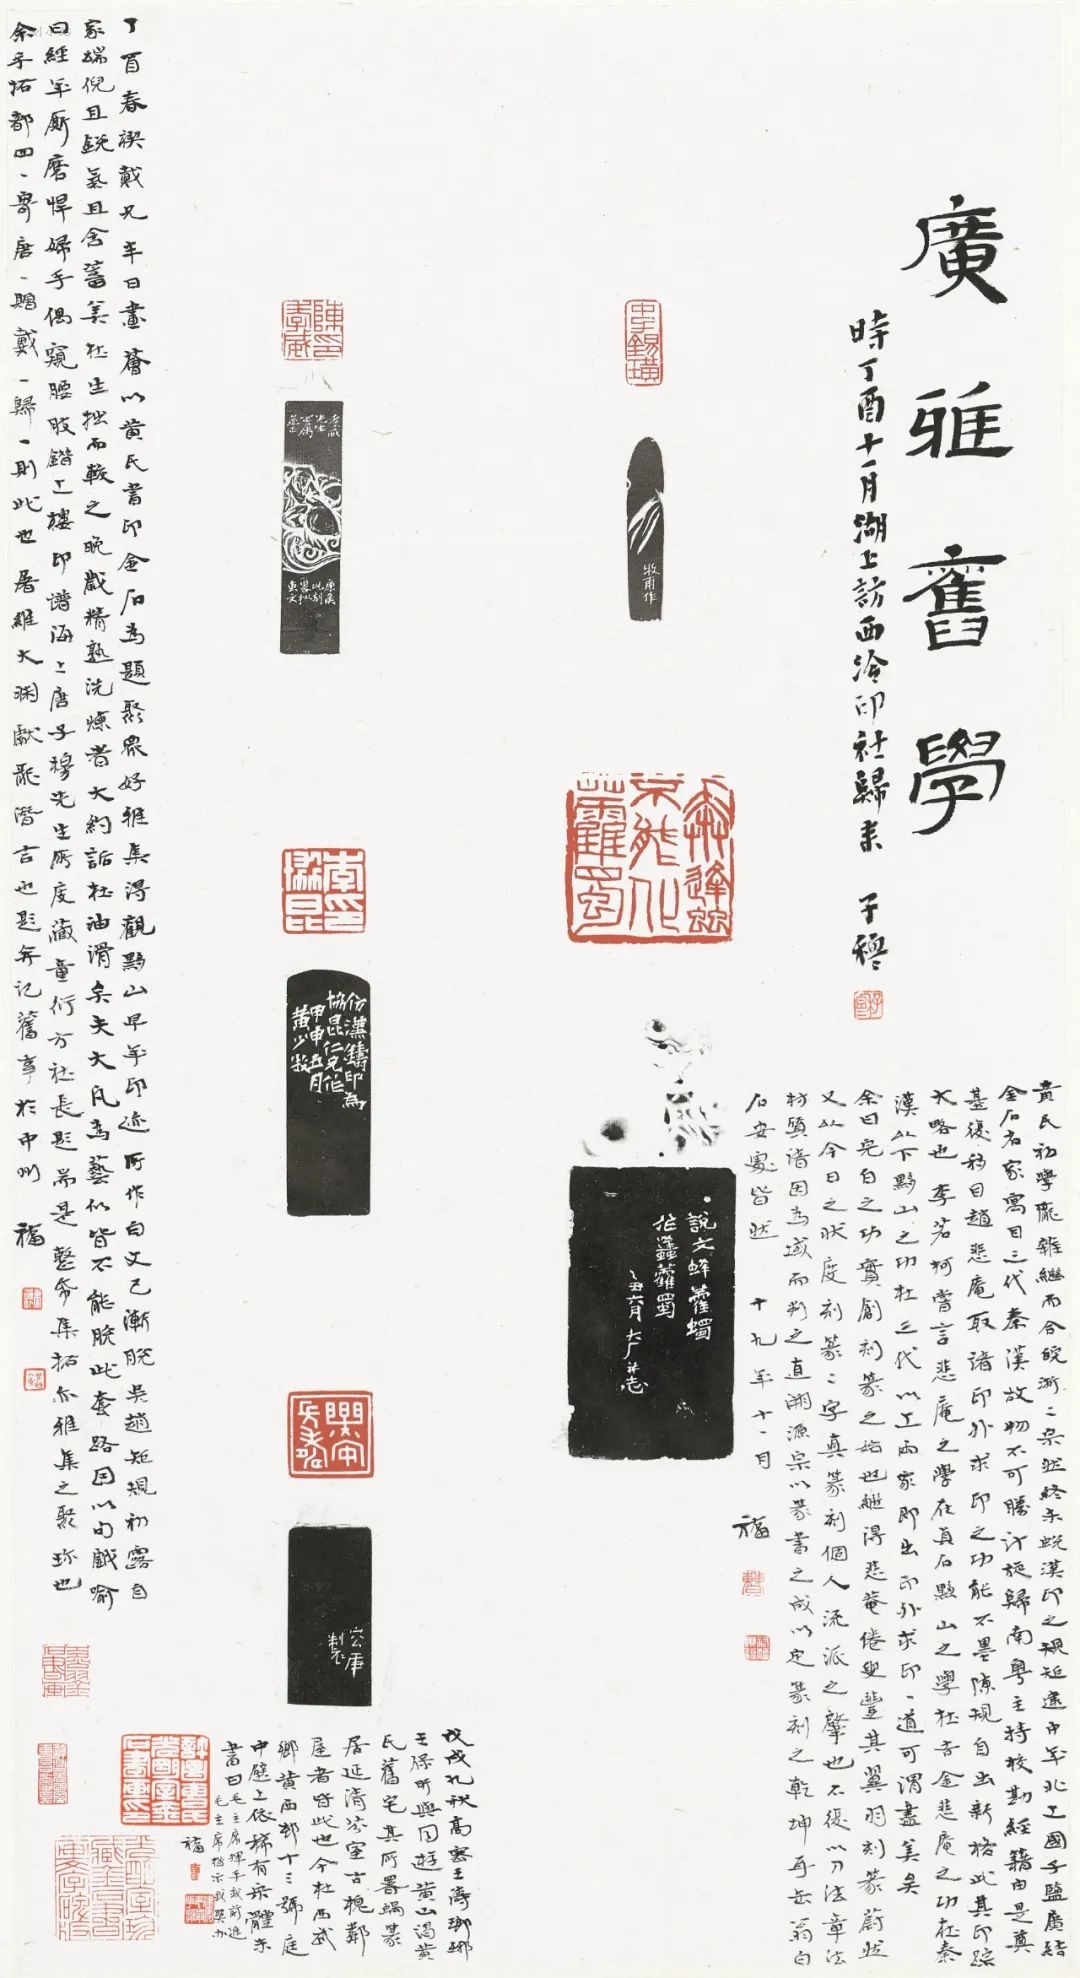 廣雅舊學
時丁酉十一月湖上訪西泠印社歸來 子穆
黃氏初學龐雜繼而合皖浙二宗然終未蛻漢印之規矩遠中年北上國子監廣結
金石名家寓目三代秦漢故物不可勝計旋歸南粵主持校勘經籍由是奠
基後移目趙悲庵取諸印外求印之功能不墨陳規自出新格此其印蹤
大略也李茗柯嘗言悲庵之學在貞石黟山之學在吉金悲庵之功在秦
漢以下黟山之功在三代以上兩家即出印外求印一道可謂盡美矣
余曰完白之功實創刻篆之始也繼得悲庵倦叟豐其翼羽刻篆蔚然
又以今日之狀度刻篆二字真篆刻個人流派之肇也不復以刀法章法
材質諸因為域而判之直溯源宗以篆書之成以定篆刻之乾坤耳缶翁白
石安處皆然 十九年十一月 福
牧甫作
說文蜯藋蠋
作蠭藋蜀
乙丑六月大厂并志
孝威
先生
正篆
仿漢鑄印為
協昆仁兄作
甲申五月
黃少牧
李印協昆
穴公庫
製
丁酉春禊戴兄半日畫薈以黃氏書印金石為題聚眾好雅集得觀黟山早年印迹所作白文已漸脫吳趙矩規初露自
家端倪且銳氣且含蓄美在生拙而較之晚歲精熟洗煉者大約詬在油滑矣夫大凡為藝似皆不能脫此套路因以句戲喻
曰經年廝磨悍婦手偶窺腰肢錯上樓印譜海上唐子穆先生所庋藏童衍方社長題耑是慤齋集拓亦雅集之聚珍也
余手拓都四一寄唐一贈戴一歸一則此也屠維大淵獻龍潛吉也題并記舊事於中州 福
戊戌孔秋高密王濤瑯琊
王保昕與同遊黃山謁黃
氏舊宅其所署蝸篆
居延清芬室古槐鄰
屋者皆此也今在西武
鄉黃西郵十三號庭
中壁上依稀有宋體朱
書曰毛主席揮手我前進
毛主席指示我照办
福